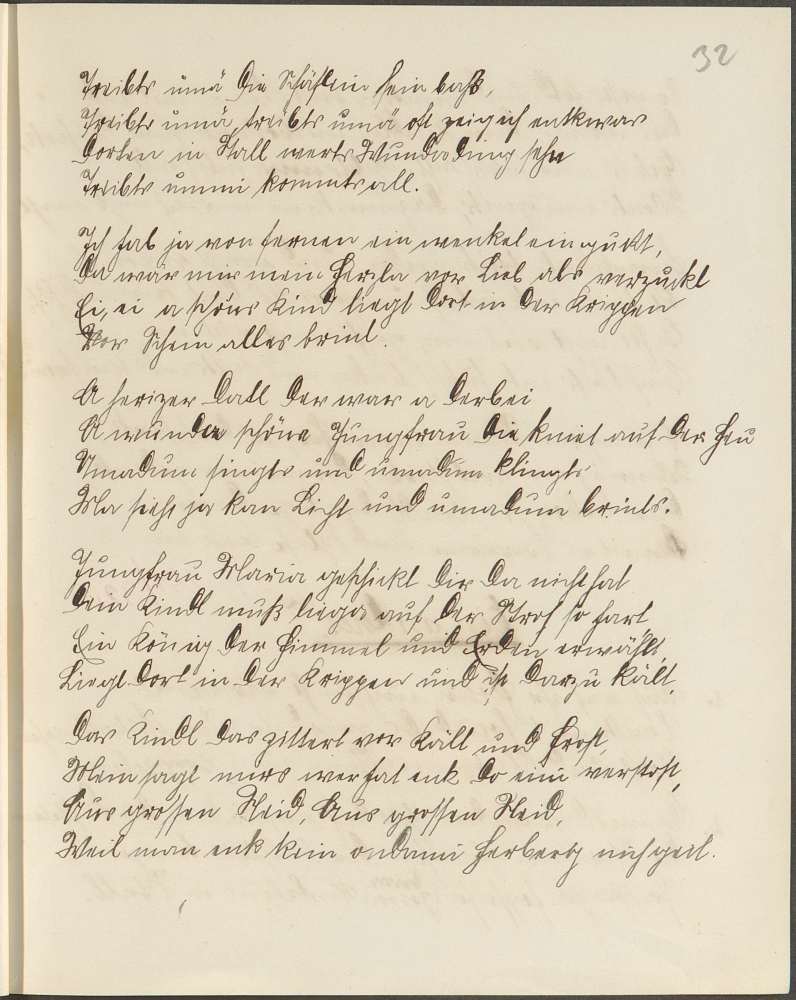 32
Treibts umä die Schäflein fein baß,
Treibts umä, treibts umä oft zeig ich enk was
Dorten in Stall werts Wunderding sehn
Treibts ummi kommts all.
Ich hab ja von fernen ein wenkel eingukt,
Da war mir mein Herzla vor Lieb als verzuckt
Ei, ei a schöns Kind liegt dort in der Krippen
Vor Schein alles brint.
A heriger Datl der war a derbei
A wunder schöne Jungfrau die kniet auf der Heu
Umadum singts und umadum klingts
Ma sieht ja kan Licht und umadum brints.
Jungfrau Maria geschickt dir da nicht hat
Dein Kindl muß liega auf der Stroh so hart
Ein König der Himmel und Erden erwählt,
Liegt dort in der Krippen und ist darzu kält,
Das Kindl das zittert vor Kält und Frost,
Mein sagt murs wer hat enk do eini verstost,
Aus grossen Neid, Aus grossen Neid,
Weil man enk kein ondami Herberg nich geit.